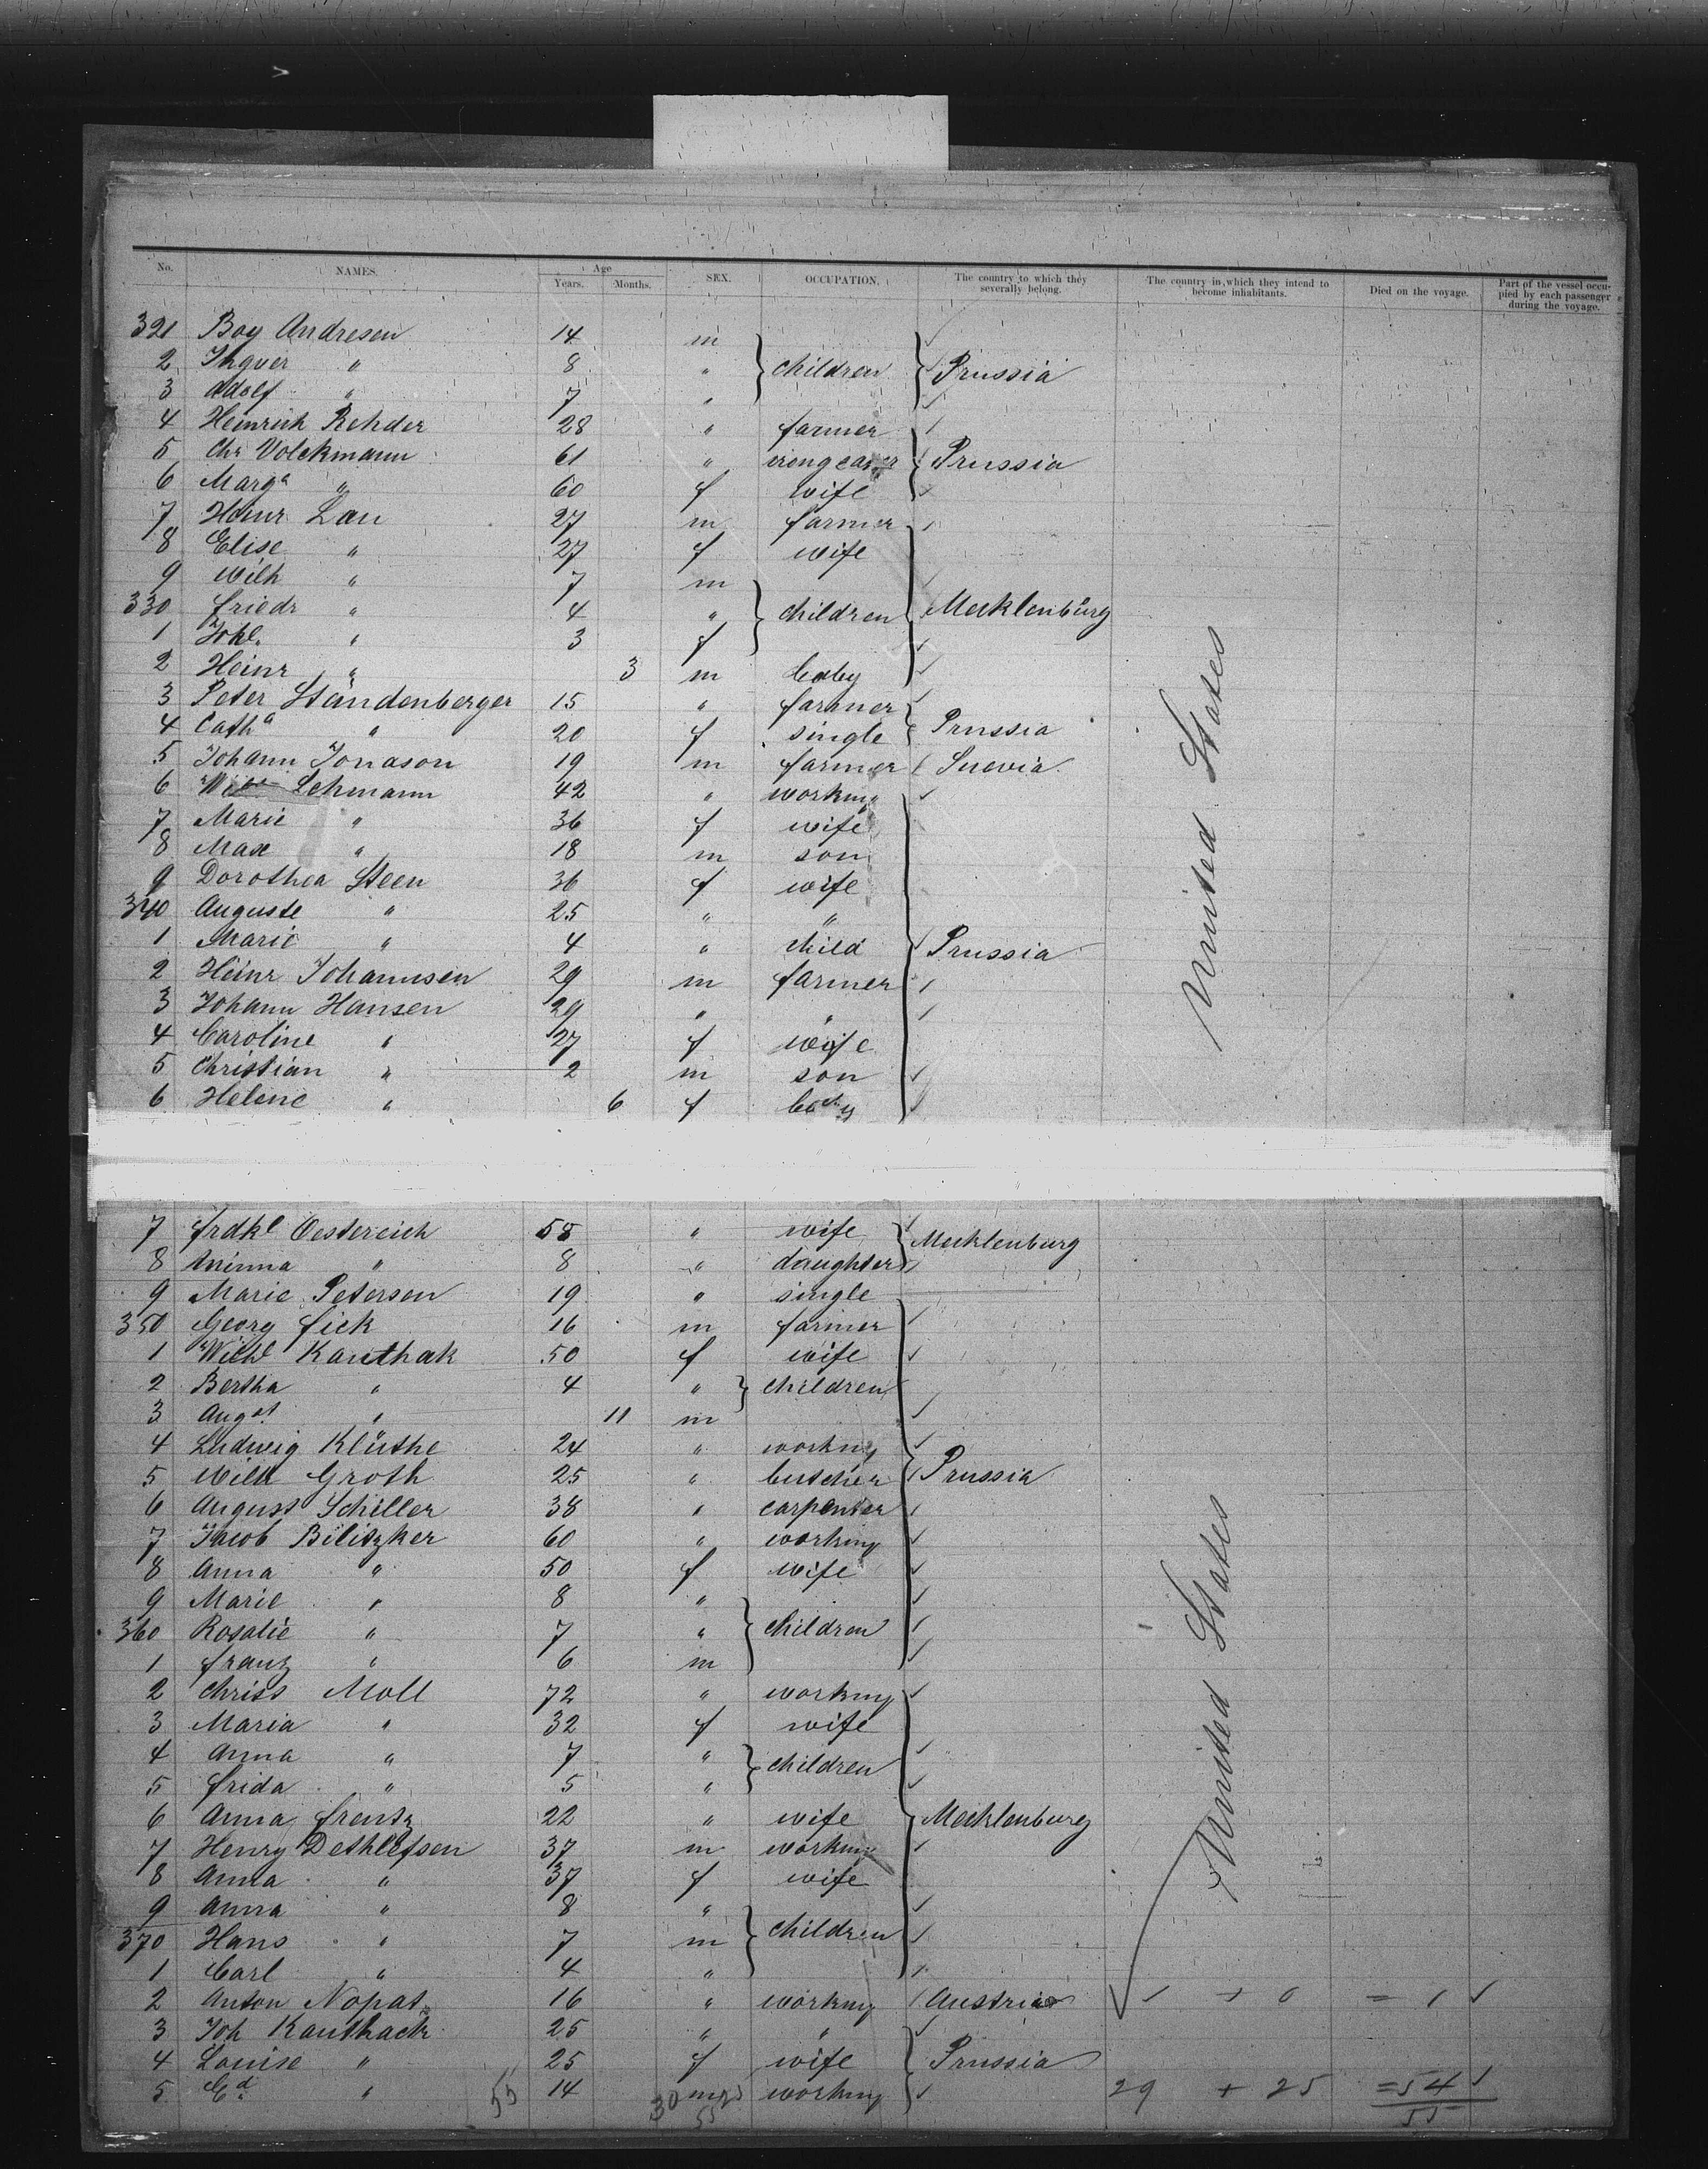 No. NAMES. Age Years. Months. SEX. OCCUPATION. The country to which they severally belong. The country in which they intend to become inhabitants. Died on the voyage. Part of the vessel occupied by each passenger during the voyage.
321 Boy Andresen 14 m
2 Ingver " 8 " children Prussia
3 Adolf " 7 "
4 Heinrich Rehder 28 " farmer
5 Chr Volckmann 61 " Prussia
6 Marga " 60 f wife
7 Heinr Lau 27 m farmer
8 Elise " 27 f wife
9 Wilh " 7 m
330 Friedr " 4 " children Mecklenburg
1 Joh. " 3 f
2 Heinr " 3 m baby
3 Peter Ständenberger 15 " farmer
4 Catha " 20 f single Prussia
5 Johann Jonason 19 m farmer Suevia
6 Lehmann 42 " working
7 Marie " 36 f wife
8 Max " 18 m son
9 Dorothea Steen 36 f wife
340 Auguste " 25 " "
1 Marie " 4 " child Prussia
2 Heinr Johannsen 29 m farmer
3 Johann Hansen 29 " "
4 Caroline " 27 f wife
5 Christian " 2 m son
6 Helene " 6 f baby
United States
7 Frdke Oestereich 58 " wife Mecklenburg
8 Minna " 8 " daughter
9 Marie Petersen 19 " single
350 Georg Fick 16 m farmer
1 Wilhe Kauthak 50 f wife
2 Bertha " 4 " children
3 Augst " 11 m
4 Ludwig Klüthe 24 " working
5 Wilh Groth 25 " butcher Prussia
6 August Schiller 38 " carpenter
7 Jacob Bilitzker 60 " working
8 Anna " 50 f wife
9 Marie " 8 "
360 Rosalie " 7 " children
1 Franz " 6 m
2 Christ Moll 72 " working
3 Maria " 32 f wife
4 Anna " 7 " children
5 Frida " 5 "
6 Anna Frentz 22 " wife Mecklenburg
7 Henry Dethlefsen 37 m working
8 Anna " 37 f wife
9 Anna " 8 "
370 Hans " 7 m children
1 Carl " 4 "
United States
2 Anton Nopat 16 " working Austria 1 + 0 = 1
3 Joh Kauthack 25 " "
4 Louise " 25 f wife Prussia
5 Ed. " 14 m working 29 + 25 = 54
55 30 25 55 55